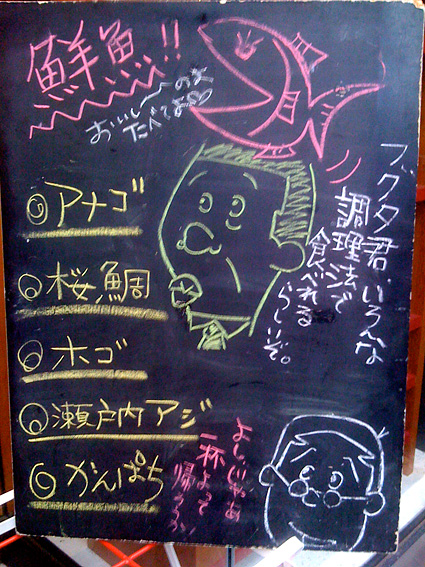 鮮魚!!
おいし〜のよ
たべてよ
フグタ君、いろんな
調理法で
食べれる
らしいぞ。
アナゴ
桜鯛
ホゴ
瀬戸内アジ
かんぱち
よしじゃあ
一杯よって
帰ろうか